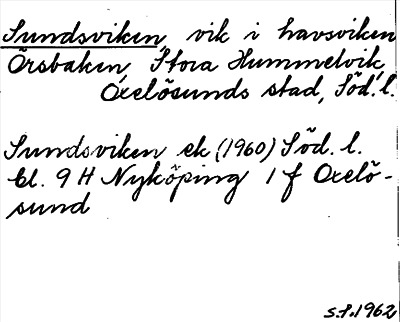 Sundsviken, vik i havsviken
Örsbaken, Stora Hummelvik,
Oxelösunds stad, Söd. l.
Sundsviken ek (1960) Söd. l.
bl. 9 H Nyköping 1 f Oxelö-
sund
s.f. 1962